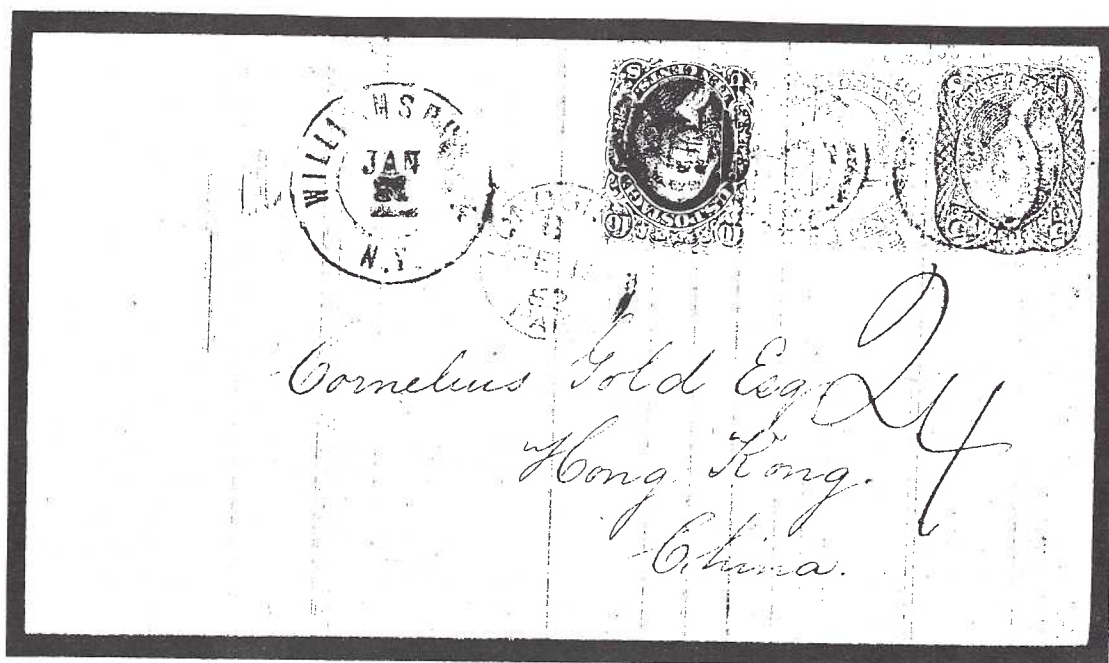 WILLIAMSBURG
JAN
N.Y.
U.S. POSTAGE
Cornelius Gold Esq
24
Hong Kong.
China.